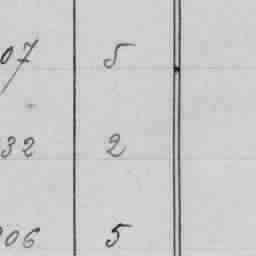 07 5
32 2
06 5